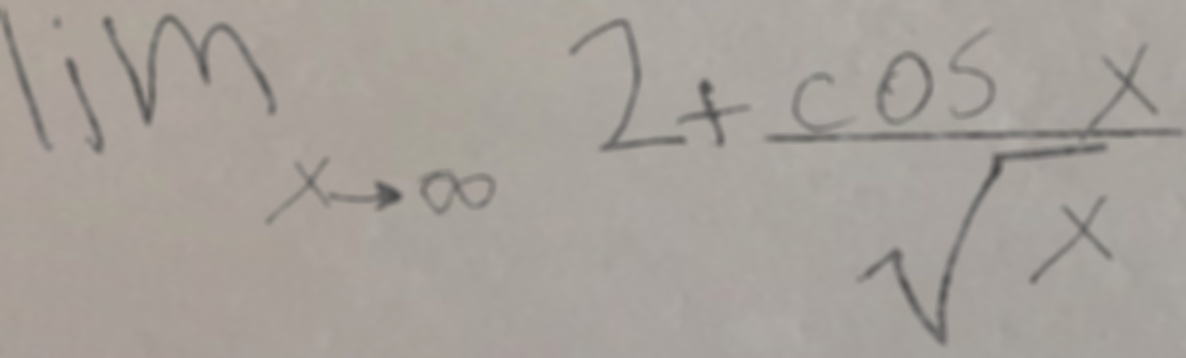 lim x→∞ 2+ cos x / √x